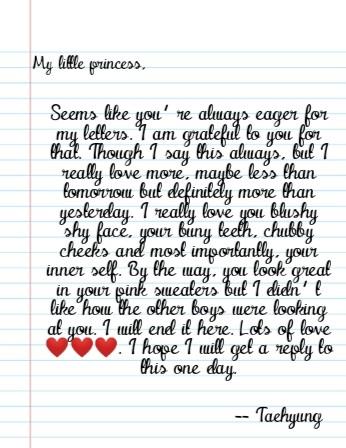 My little princess,
Seems like you' re always eager for
my letters. I am grateful to you for
that. Though I say this always, but I
really love more, maybe less than
tomorrow but definitely more than
yesterday. I really love you blushy
shy face, your buny teeth, chubby
cheeks and most importantly, your
inner self. By the way, you look great
in your pink sweaters but I didn' t
like how the other boys were looking
at you. I will end it here. Lots of love
❤️❤️❤️. I hope I will get a reply to
this one day.
-- Taehyung